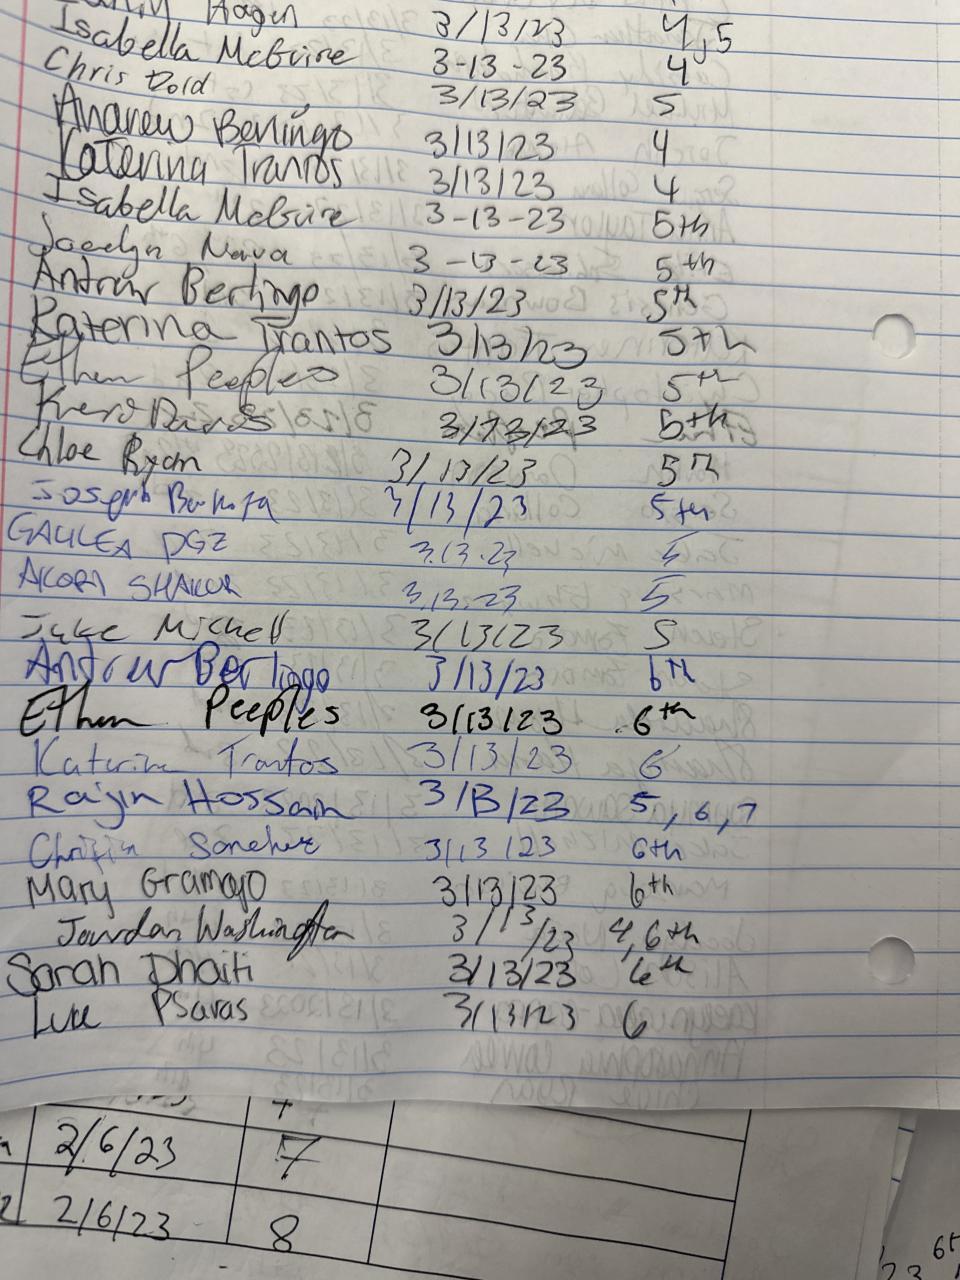 Hagen 3/13/23 4,5
Isabella McGuire 3-13-23 4
Chris Dold 3/13/23 5
Andrew Berlingo 3/13/23 4
Katerina Trantos 3/13/23 4
Isabella McGuire 3-13-23 5th
Jocelyn Nava 3-13-23 5th
Andrew Berlingo 3/13/23 5th
Katerina Trantos 3/13/23 5th
Ethan Peeples 3/13/23 5th
3/13/23 5th
Chloe Ryan 3/13/23 5th
Joseph 3/13/23 5th
GALILEA DGZ 3.13.23 5
AKORI SHAKUR 3.13.23 5
Jake Michell 3/13/23 5
Andrew Berlingo 3/13/23 6th
Ethan Peeples 3/13/23 6th
Katerina Trantos 3/13/23 6
Ra'yin Hossain 3/13/23 5, 6, 7
Sanchez 3/13/23 6th
Mary Gramajo 3/13/23 6th
Jourdan Washington 3/13/23 4,6th
Sarah Dhaiti 3/13/23 6th
Luke Psaras 3/13/23 6
2/6/23 7
2/6/23 8